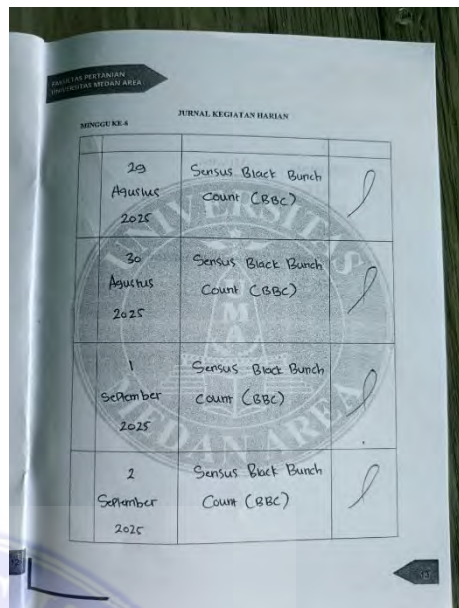 FAKULTAS PERTANIAN
UNIVERSITAS MEDAN AREA
JURNAL KEGIATAN HARIAN
MINGGU KE-6
29
Agustus
2025
Sensus Black Bunch
Count (BBC)
30
Agustus
2025
Sensus Black Bunch
Count (BBC)
1
September
2025
Sensus Black Bunch
Count (BBC)
2
September
2025
Sensus Black Bunch
Count (BBC)
UNIVERSITAS
MEDAN AREA